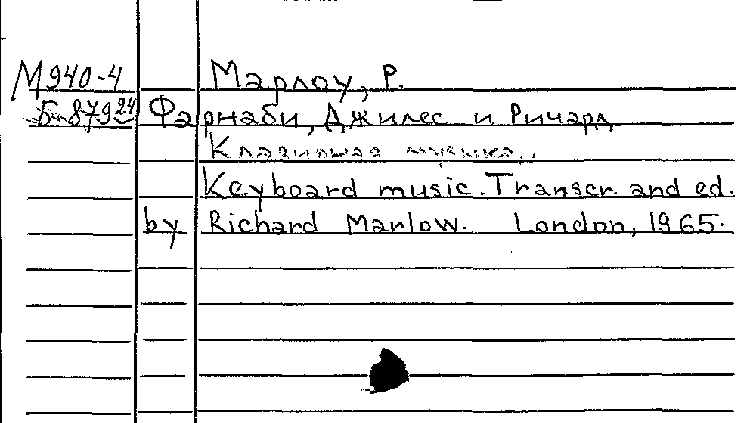 М940-4 Марлоу, Р.
Б-879 24 Фарнаби, Джилес и Ричард
Клавирная музыка.
Keyboard music. Transcr. and ed.
by Richard Marlow. London, 1965.